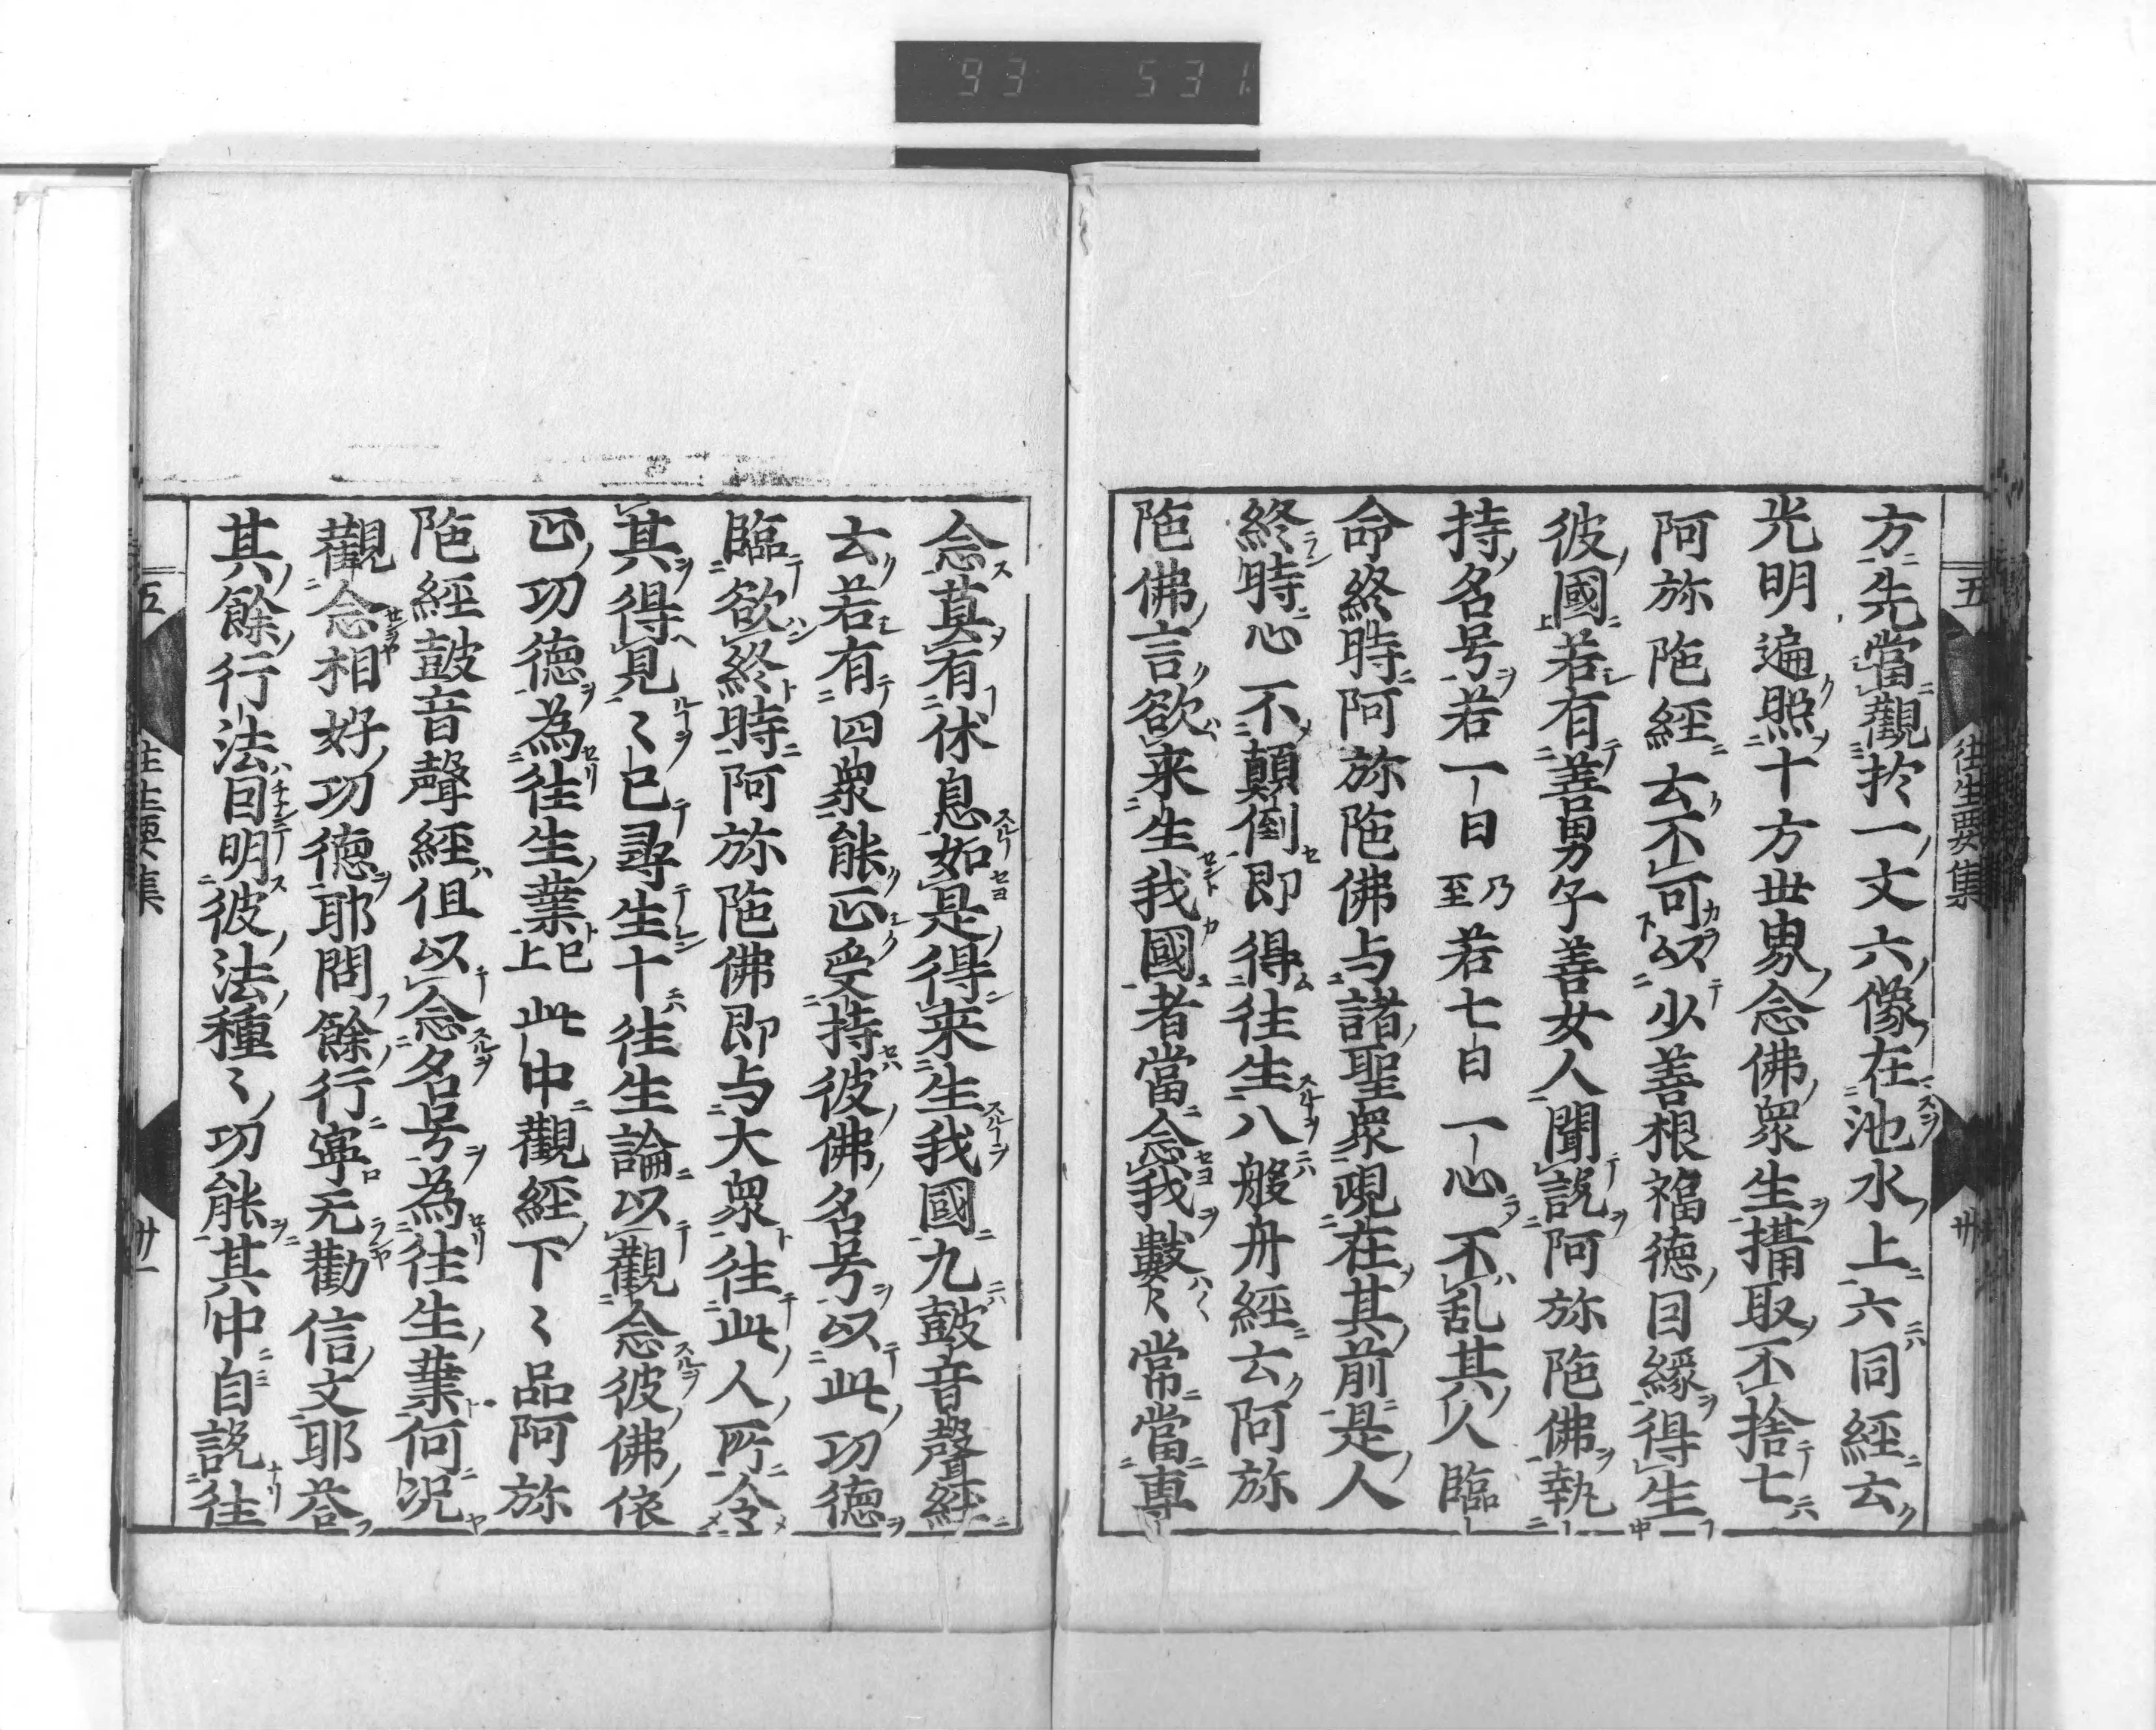 93 531
五 往生要集 卅
方先當觀於一丈六像在池水上六同經云
光明遍照十方世界念佛衆生攝取不捨七
阿弥陁經云不可以少善根福德因緣得生
彼國若有善男子善女人聞說阿弥陁佛執
持名号若一日乃至若七日一心不乱其人臨
命終時阿弥陁佛与諸聖衆現在其前是人
終時心不顛倒即得往生八般舟經云阿弥
陁佛言欲来生我國者當念我數〻常當專
念莫有休息如是得来生我國九鼓音聲經
云若有四衆能正受持彼佛名号以此功德
臨欲終時阿弥陁佛即与大衆往此人所令
其得見〻已尋生十往生論以觀念彼佛依
正功德為往生業已上此中觀經下〻品阿弥
陁經鼓音聲經但以念名号為往生業何况
觀念相好功德耶問餘行寧无勸信文耶荅
其餘行法因明彼法種〻功能其中自說往
五 往生要集 卅一